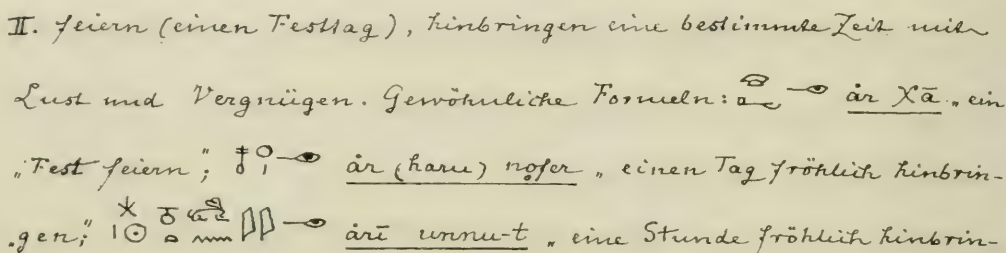 II. feiern (einen Festtag), hinbringen eine bestimmte Zeit mit
Lust und Vergnügen. Gewöhnliche Formeln:år χā „ein
„Fest feiern“; år (haru) nofer „einen Tag fröhlich hinbrin-
„gen;“ årī unnu-t „eine Stunde fröhlich hinbrin-